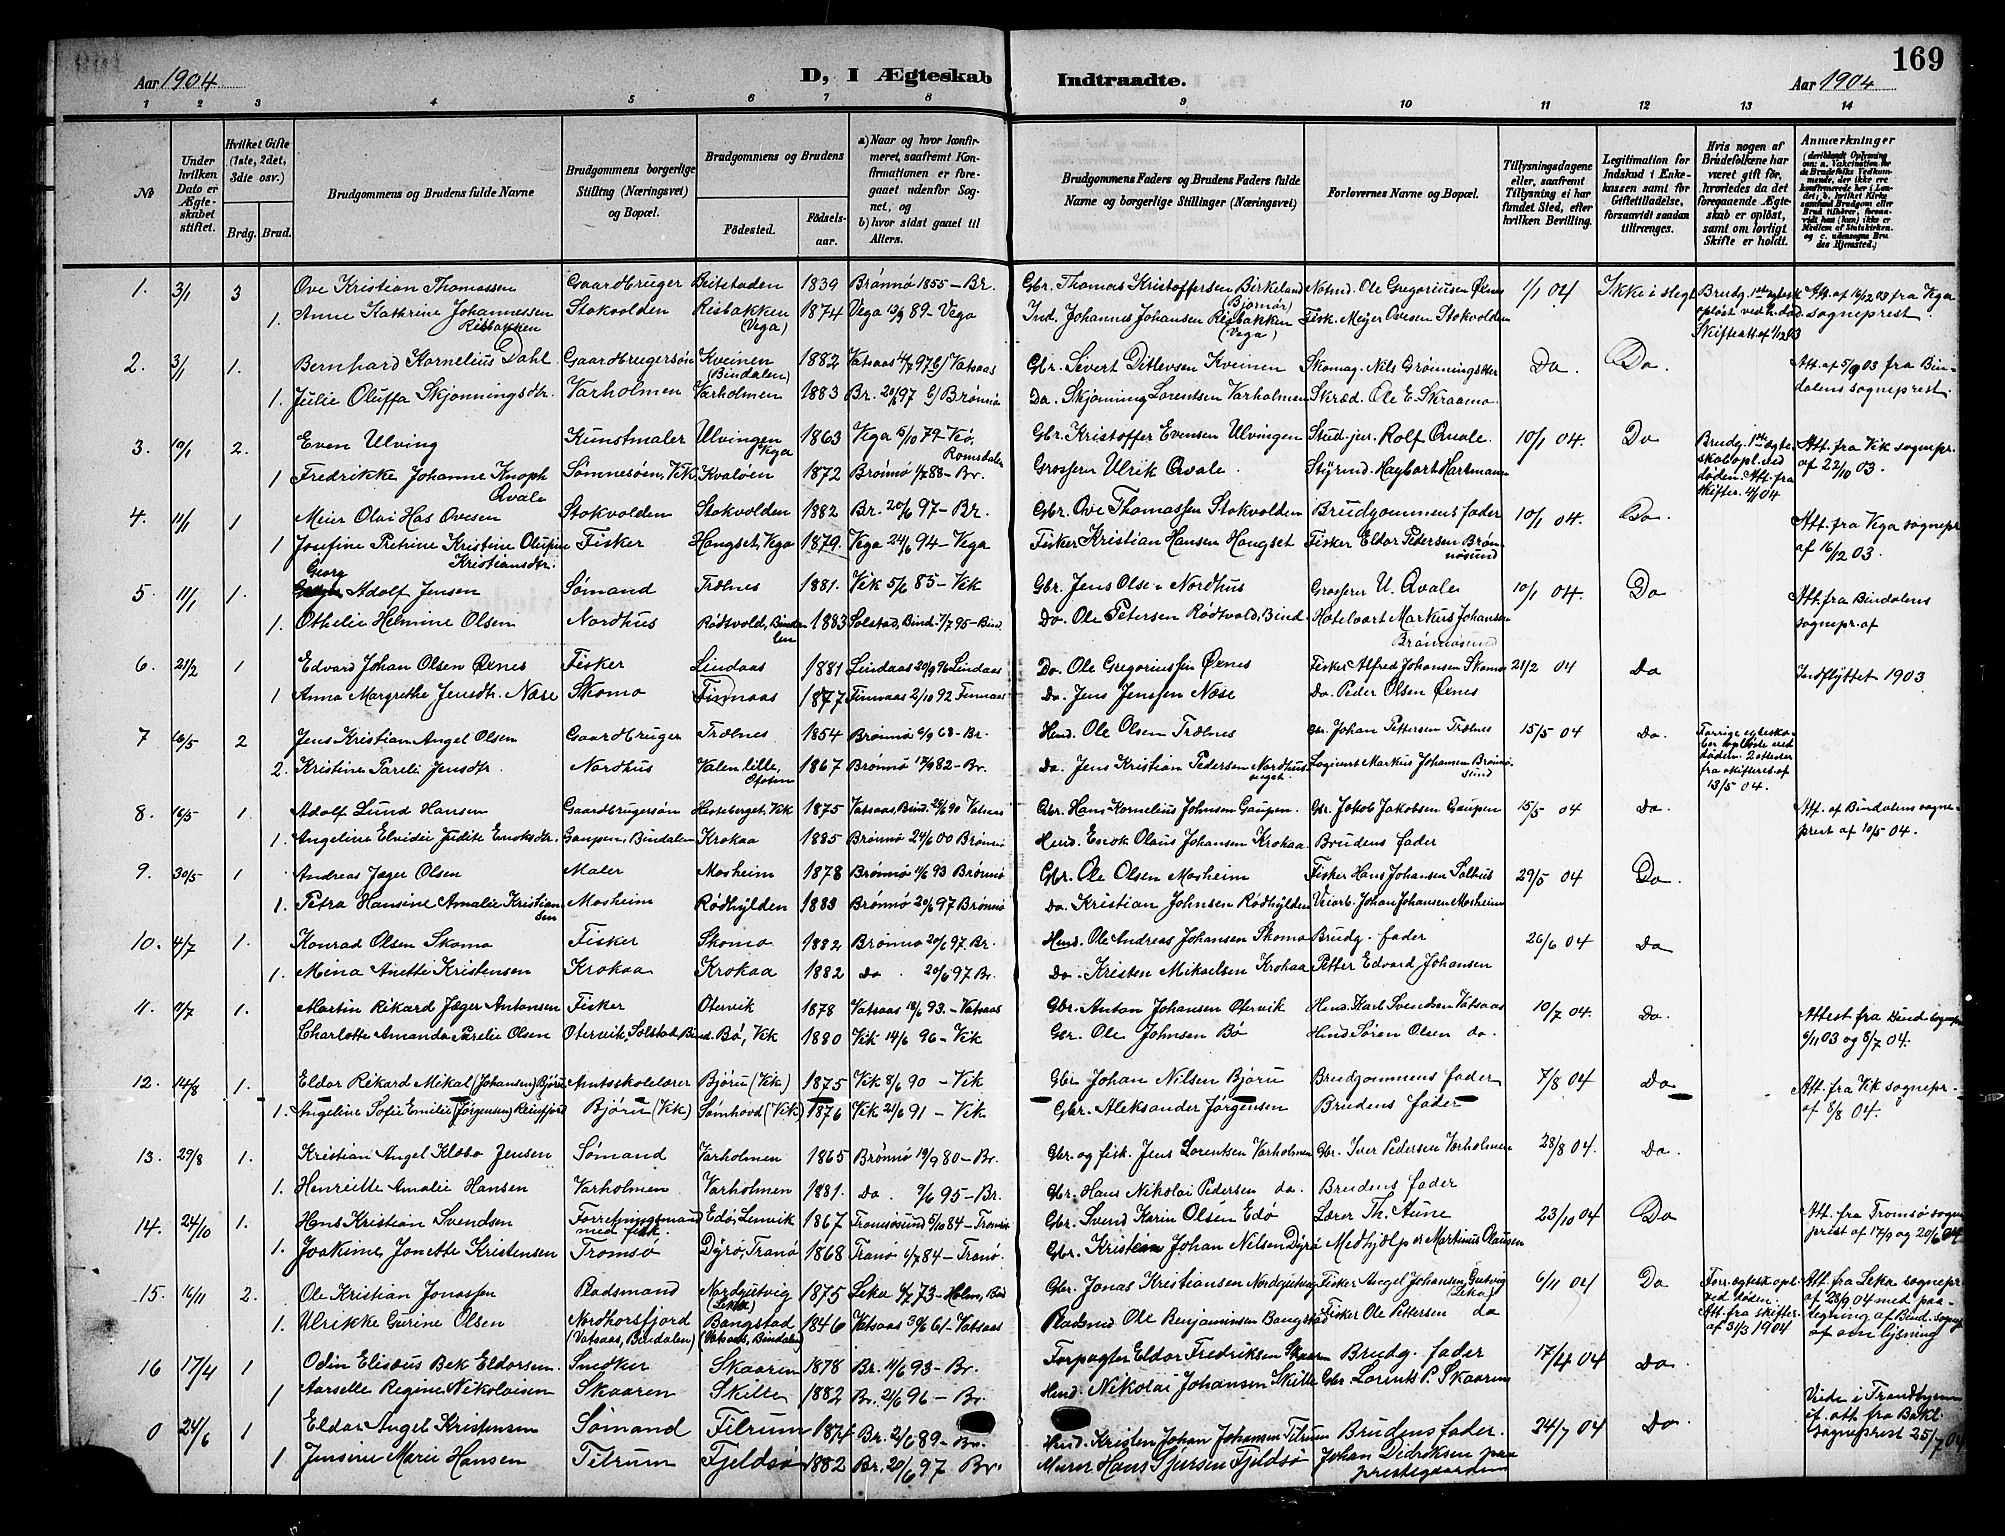 169
Aar 1904
D, I Ægteskab
Indtraadte.
Aar 1904
1 2 3 4 5 6 7 8 9 10 11 12 13 14
No
Under hvilken Dato er Ægteskabet stiftet.
Hvilket Gifte (1ste, 2det, 3die osv.)
Brdg. Brud.
Brudgommens og Brudens fulde Navne
Brudgommens borgerlige Stilling (Næringsvei) og Bopæl.
Brudgommens og Brudens
Födested.
Födselsaar.
a) Naar og hvor konfirmeret, saafremt Konfirmationen er foregaaet udenfor Sognet, og
b) hvor sidst gaaet til Alters.
Brudgommens Faders og Brudens Faders fulde Navne og borgerlige Stillinger (Næringsvei)
Forlovernes Navne og Bopæl.
Tillysningsdagene eller, saafremt Tillysning ei har fundet Sted, efter hvilken Bevilling.
Legitimation for Indskud i Enkekassen samt for Giftetilladelse, forsaavidt saadan tiltrænges.
Hvis nogen af Brudefolkene har været gift för, hvorledes da det foregaaende Ægteskab er oplöst, samt om lovligt Skifte er holdt.
Anmærkninger
1. 3/1 3 Ove Kristian Thomassen Gaardbruger Beitstaden 1839 Brönnö 1855 – Br. Gbr. Thomas Kristoffersen Birkeland (Bjørnör) Notmd. Ole Gregoriusen Øxnes 1/1 04 Ikke i Hegt
1. Anne Kathrine Johannessen Risbakken Stokvolden Risbakken (Vega) 1874 Vega 13/9 89 – Vega Ind. Johannes Johansen Risbakken (Vega) Fisk. Meyer Ovesen Stokvolden
Att. af 16/12 03 fra Vega sogneprest.
2. 3/1 1. Bernhard Kornelius Dahl Gaardbrugersön Kveinen (Bindalen) 1882 Vatsaas 4/7 97 b/ Vatsaas Gbr. Sivert Ditlevsen Kveinen Skomag. Nils Grönningsæter Do. Do.
1. Julie Oluffa Skjönningsdtr. Varholmen Varholmen 1883 Br. 20/6 97 b/ Brönnö Do. Skjönning Lorentsen Varholmen Skræd. Ole E. Skraamo.
Att. af 5/9 03 fra Bindalens sogneprest.
3. 10/1 2. Even Ulving Kunstmaler Ulvingen Vega 1863 Vega 5/10 79 – Veö, Romsdalen Gbr. Kristoffer Evensen Ulvingen Stud. jur. Rolf Qvale. 10/1 04. Do
1 Fredrikke Johanne Knoph Qvale Sömnesöen, Vik Kvalöen 1872 Brönnö 1/7 88 – Br. Grosserer Ulrik Qvale. Styrmd. Hagbart Hartmann
Att. fra Vik sognepr. af 22/10 03.
4. 11/1 1 Meier Olai Has Ovesen Stokvolden Stokvolden 1882 Br. 20/6 97 – Br. Gbr. Ove Thomassen Stokvolden Brudgommens fader 10/1 04. Do.
1 Josefine Petrine Kristine Olufine Kristiansdtr. Fisker Hongset, Vega 1879. Vega 24/6 94 – Vega Fisker Kristian Hansen Hongset Fisker Eldor Pedersen Brönnösund
Att. fra Vega sognepr af 16/12 03.
5. 11/1 1. Georg Adolf Jensen Sömand Trælnes 1881. Vik 5/6 85 – Vik Gbr. Jens Olsen Nordhus Grosserer U. Qvale 10/1 04. Do
1. Othelie Helmine Olsen Nordhus Rödtvold, Bindalen 1883 Solstad, Bind. 7/7 95 – Bind Do. Ole Petersen Rödtvold, Bind. Hotelvært Markus Johansen Brönnösund
Att. fra Bindalens sognepr. af
6. 21/2 1 Edvard Johan Olsen Øxnes Fisker Lindaas 1881 Lindaas 20/9 96 Lindaas Do. Ole Gregoriussen Øxnes Fisker Alfred Johansen Skomo 21/2 04 Do
1 Anna Margrethe Jensdtr. Næse Skomo Finnaas 1877 Finnaas 2/10 92 Finnaas Do. Jens Jensen Næse Do. Peder Olsen Øxnes
Indflyttet 1903
7 16/5 2 Jens Kristian Angel Olsen Gaardbruger Trælnes 1854 Brönnö 6/9 68 – Br. Hmd. Ole Olsen Trælnes Gbr. Johan Pettersen Trælnes 15/5 04 Do.
2. Kristine Parelie Jensdtr. Nordhus Valen lille, Ofoten 1867 Brönnö 17/9 82 – Br. Do. Jens Kristian Pedersen Nordhus Logivert Markus Johansen Brönnösund
fra skifteret af 13/5 04.
8. 16/5 1 Adolf Lund Hansen Gaardbrugersön Hesteberget, Vik 1875 Vatsaas, Bind. 29/6 90 Vatsaas Gbr. Hans Kornelius Johnsen Gaupen. Gbr. Jakob Jakobsen Gaupen 15/5 04 Do.
1. Angeline Elvidie Judite Enoksdtr. Gaupen, Bindalen Krokaa 1885 Brönnö 24/6 00 Brönnö Hmd. Enok Olaus Johansen Krokaa Brudens fader
Att. af Bindalens sogneprest af 10/5 04.
9. 30/5 1 Andreas Jæger Olsen Maler Mosheim 1878 Brönnö 11/6 93 Brönnö Gbr. Ole Olsen Mosheim Fisker Hans Johansen Salhus 29/5 04 Do.
1. Petra Hansine Amalie Kristiansen Mosheim Rödhylden 1883 Brönnö 20/6 97 Brönnö Do. Kristian Johnsen Rödhylden Veiarb. Johan Johansen Mosheim
10. 4/7 1. Konrad Olsen Skomo Fisker Skomo 1882 Brönnö 20/6 97 Br. Hmd. Ole Andreas Johansen Skomo Brudg. fader 26/6 04 Do
1. Mina Anette Kristensen Krokaa Krokaa 1882 Do. 20/6 97 Br. Do. Kristen Mikaelsen Krokaa Petter Edvard Johansen
11. 11/7 1. Martin Rikard Jæger Antonsen Fisker Otervik 1878 Vatsaas 18/6 93. – Vatsaas Gbr. Anton Johansen Otervik Hmd. Karl Svendsen Vatsaas 10/7 04. Do.
Charlotte Amanda Parelie Olsen Otervik, Solstad, Bind. Bö, Vik 1880 Vik 14/6 96 – Vik Gbr. Ole Johnsen Bö Hmd Sören Olsen do.
Attest fra Bind. sognepr 6/11 03 og 8/7 04.
12. 14/8 1. Eldor Rikard Mikal (Johansen) Björu Amtsskolelærer Björu (Vik) 1875 Vik 8/6 90 – Vik Gbr. Johan Nilsen Björu Brudgommens fader 7/8 04 Do
1. Angeline Sofie Emilie (Jörgensen) Reinfjord Björu (Vik) Sömhovd (Vik) 1876 Vik 21/6 91 – Vik Gbr. Aleksander Jörgensen Brudens fader
Att. fra Vik sognepr. af 8/8 04.
13. 29/8 1. Kristian Angel Klæbo Jensen Sömand Varholmen 1865 Brönnö 19/9 80 – Br. Gbr. og fisk. Jens Lorentsen Varholmen Gbr. Iver Pedersen Varholmen 28/8 04. Do.
1. Henriette Amalie Hansen Varholmen Varholmen 1881. Do. 9/6 95 – Br. Gbr. Hans Nikolai Pedersen do. Brudens fader
14. 24/10 1. Hans Kristian Svendsen Forretningsmand med fisk. Edö, Lenvik 1867 Tromösund 5/10 84 – Tromsö Gbr. Svend Karin Olsen Edö Lærer Th. Aune 23/10 04 Do
1. Joakime Jonette Kristensen Tromsö Dyrö, Tranö 1868 Tranö 6/7 84 – Tranö. Gbr. Kristen Johan Nilsen Dyrö Medhjælper Martinus Olausen
Att. fra Tromsö sogneprest af 17/9 og 20/6 04
15. 16/11 2. Ole Kristian Jonassen Pladsmand Nordgutvig (Leka) 1875 Leka 6/7 73 – Holm, Bind Gbr. Jonas Kristiansen Nordgutvig Fisker Angel Johansen Gutvig (Leka) 6/11 04 Do
1. Ulrikke Gurine Olsen Nordhorsfjord (Vatsaas, Bindalen) Bangstad (Vatsaas, Bindalen) 1846 Vatsaas 30/6 61 – Vatsaas Pladsmd Ole Benjaminsen Bangstad Fisker Ole Pettersen do
Forr. ægtesk. opl. ved döden. Att. fra skifter. af 31/3 1904
Att. fra Leka sognepr. af 28/9 04 med paategning af Bind. sognepr. af om lysning
16 17/4 1 Odin Elisæus Bek Eldorsen Snedker Skaaren 1878 Br. 11/6 93 – Br. Forpagter Eldor Fredriksen Skaaren Brudg. fader 17/4 04 Do.
1 Aarselle Regine Nikolaisen Skaaren Skille 1882 Br. 21/6 96 – Br. Hmd. Nikolai Johansen Skille Gbr. Lorents P. Skaaren
0 24/6 1 Eldor Angel Kristensen Sömand Tilrum 1874 Br. 21/6 89 – Br. Hmd. Kristen Johan Johansen Tilrum Brudens fader. 24/7 04 Do
1 Jensine Marie Hansen Tilrum Fjeldsö 1882 Br. 20/6 97 Br. Murer Hans Sjursen Fjeldsö Johan Didriksen paa prestegaarden
Viede i Trondhjem if. att fra Bakl. sogneprest 25/7 04